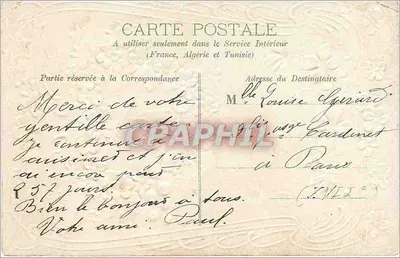 CARTE POSTALE
A utiliser seulement dans le Service Intérieur
(France, Algérie et Tunisie)
Partie réservée à la Correspondance
Adresse du Destinataire
Merci de votre
gentille carte
je continue à
et j'en
ai encore pour
257 jours.
Bien le bonjour à tous.
Votre ami. Paul.
Mlle Louise
Cardinet
à Paris
(XVII
CPAPHIL.com